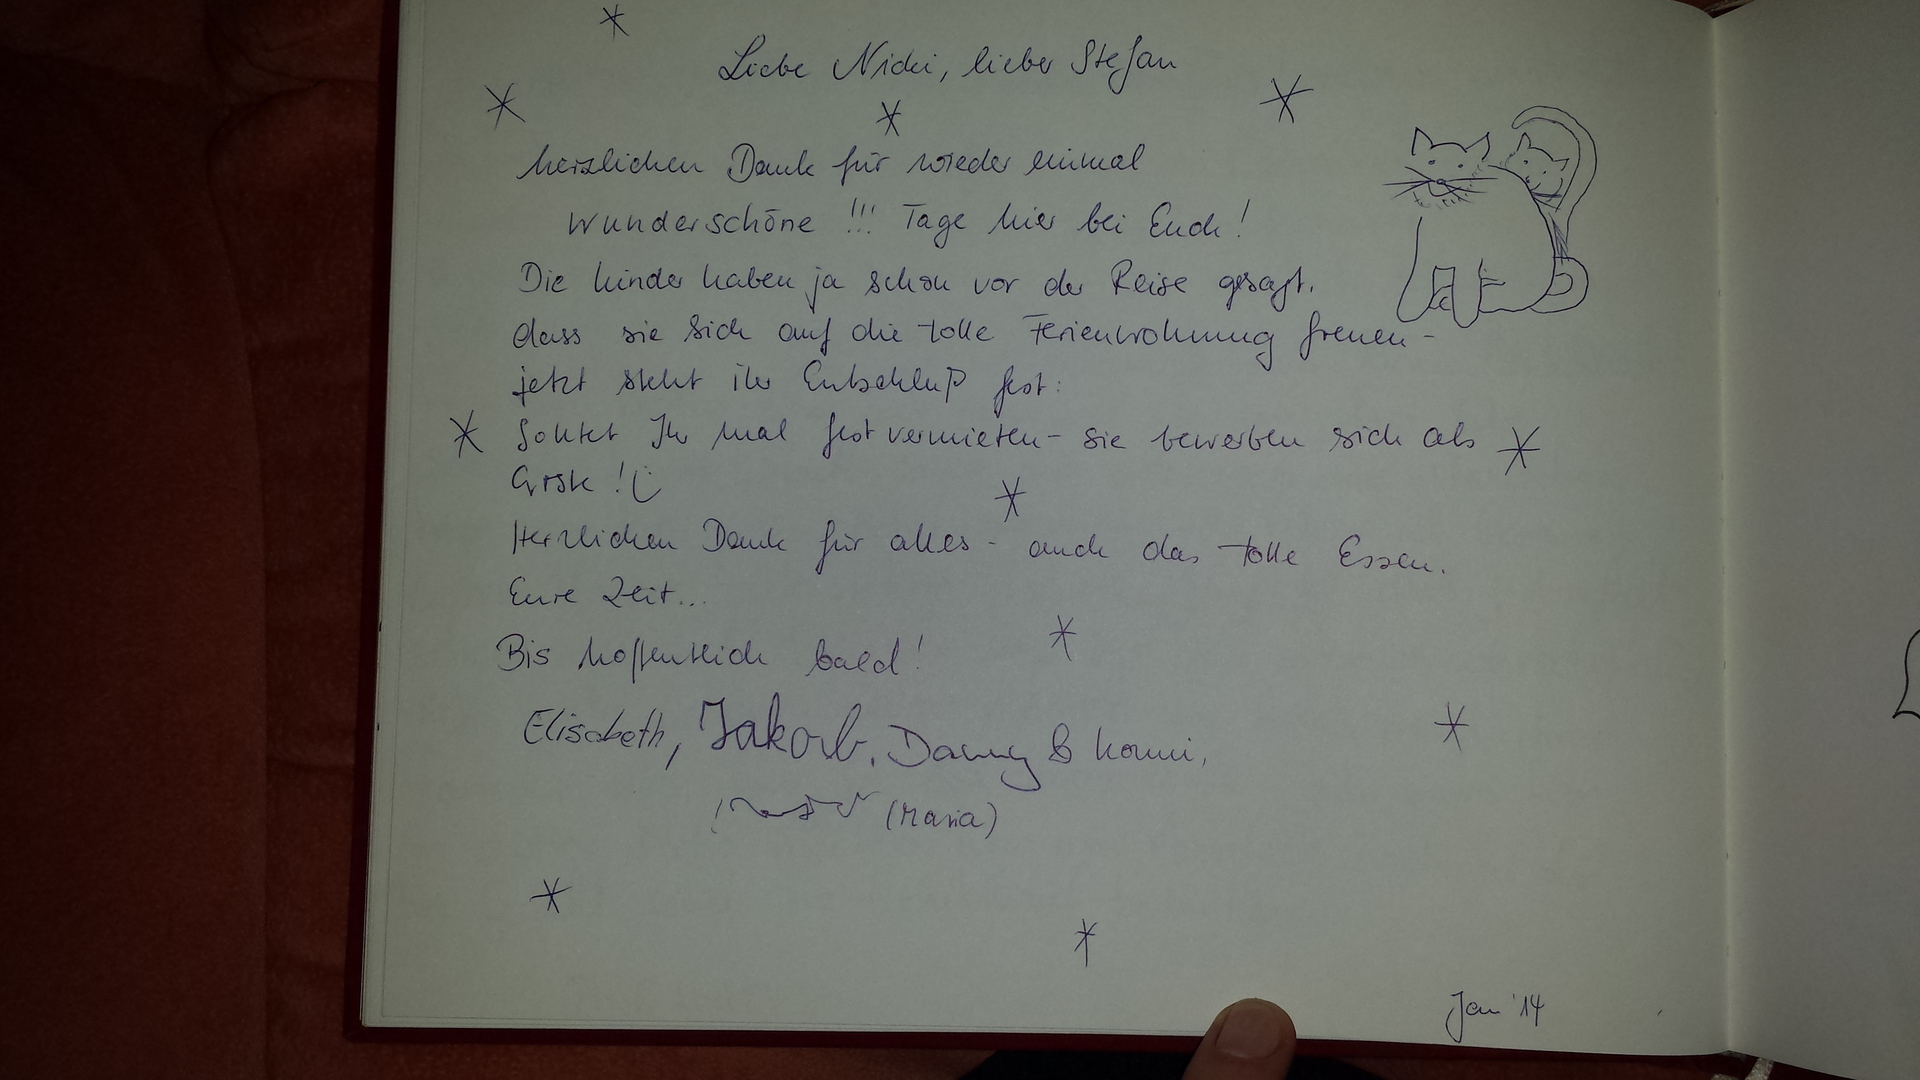 Liebe Nicki, lieber Stefan
herzlichen Dank für wieder einmal
wunderschöne !!! Tage hier bei Euch!
Die Kinder haben ja schon vor der Reise gesagt,
dass sie sich auf die tolle Ferienwohnung freuen -
jetzt steht ihr Entschluß fest:
Solltet Ihr mal fest vermieten - sie bewerben sich als
Erste!
Herzlichen Dank für alles - auch das tolle Essen.
Eure Zeit...
Bis hoffentlich bald!
Elisabeth, Jakob, Danny & Konni,
(Maria)
Jan '14